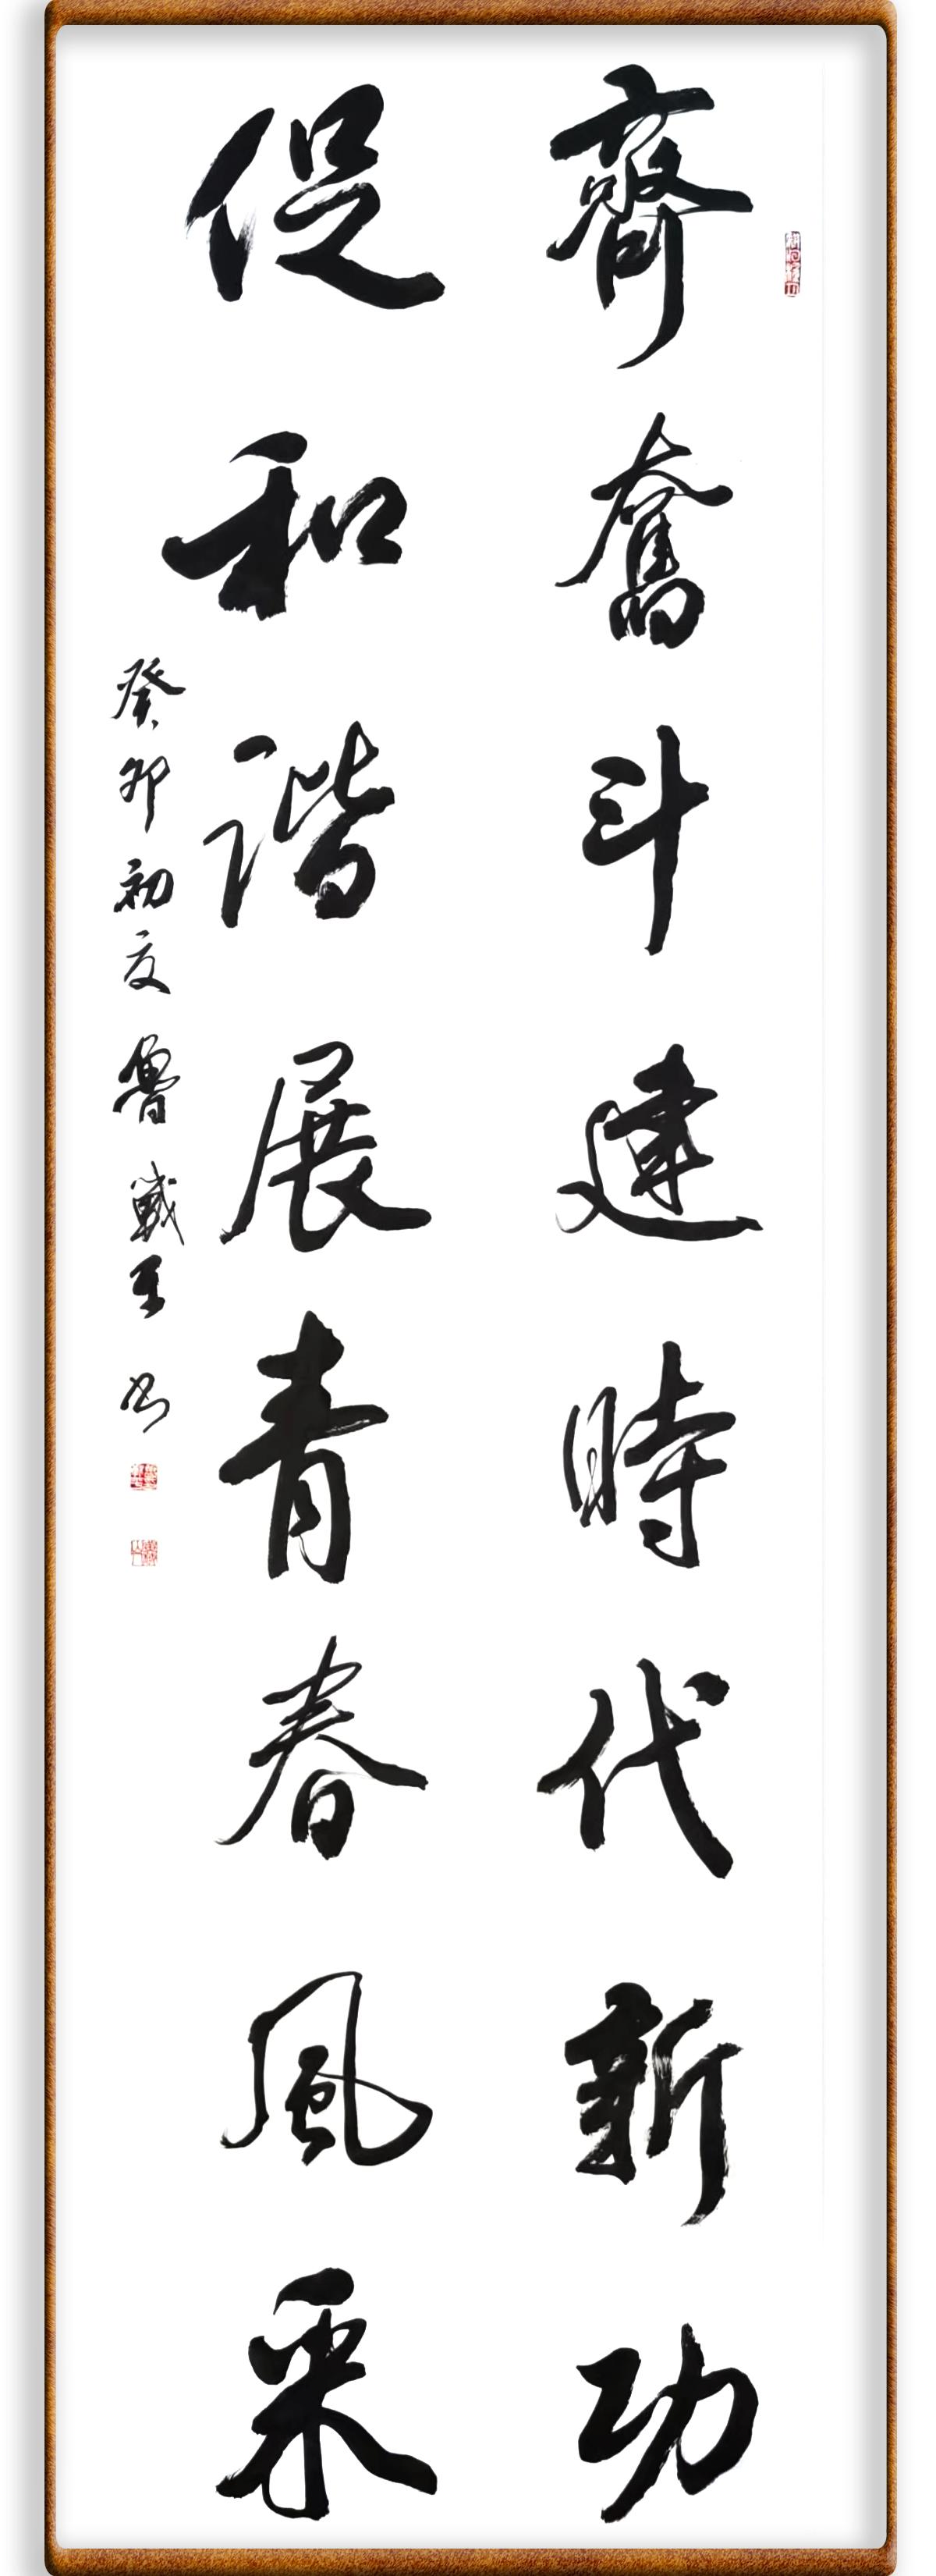 齊奮斗建時代新功
促和諧展青春風采
癸卯初夏魯戰玉书